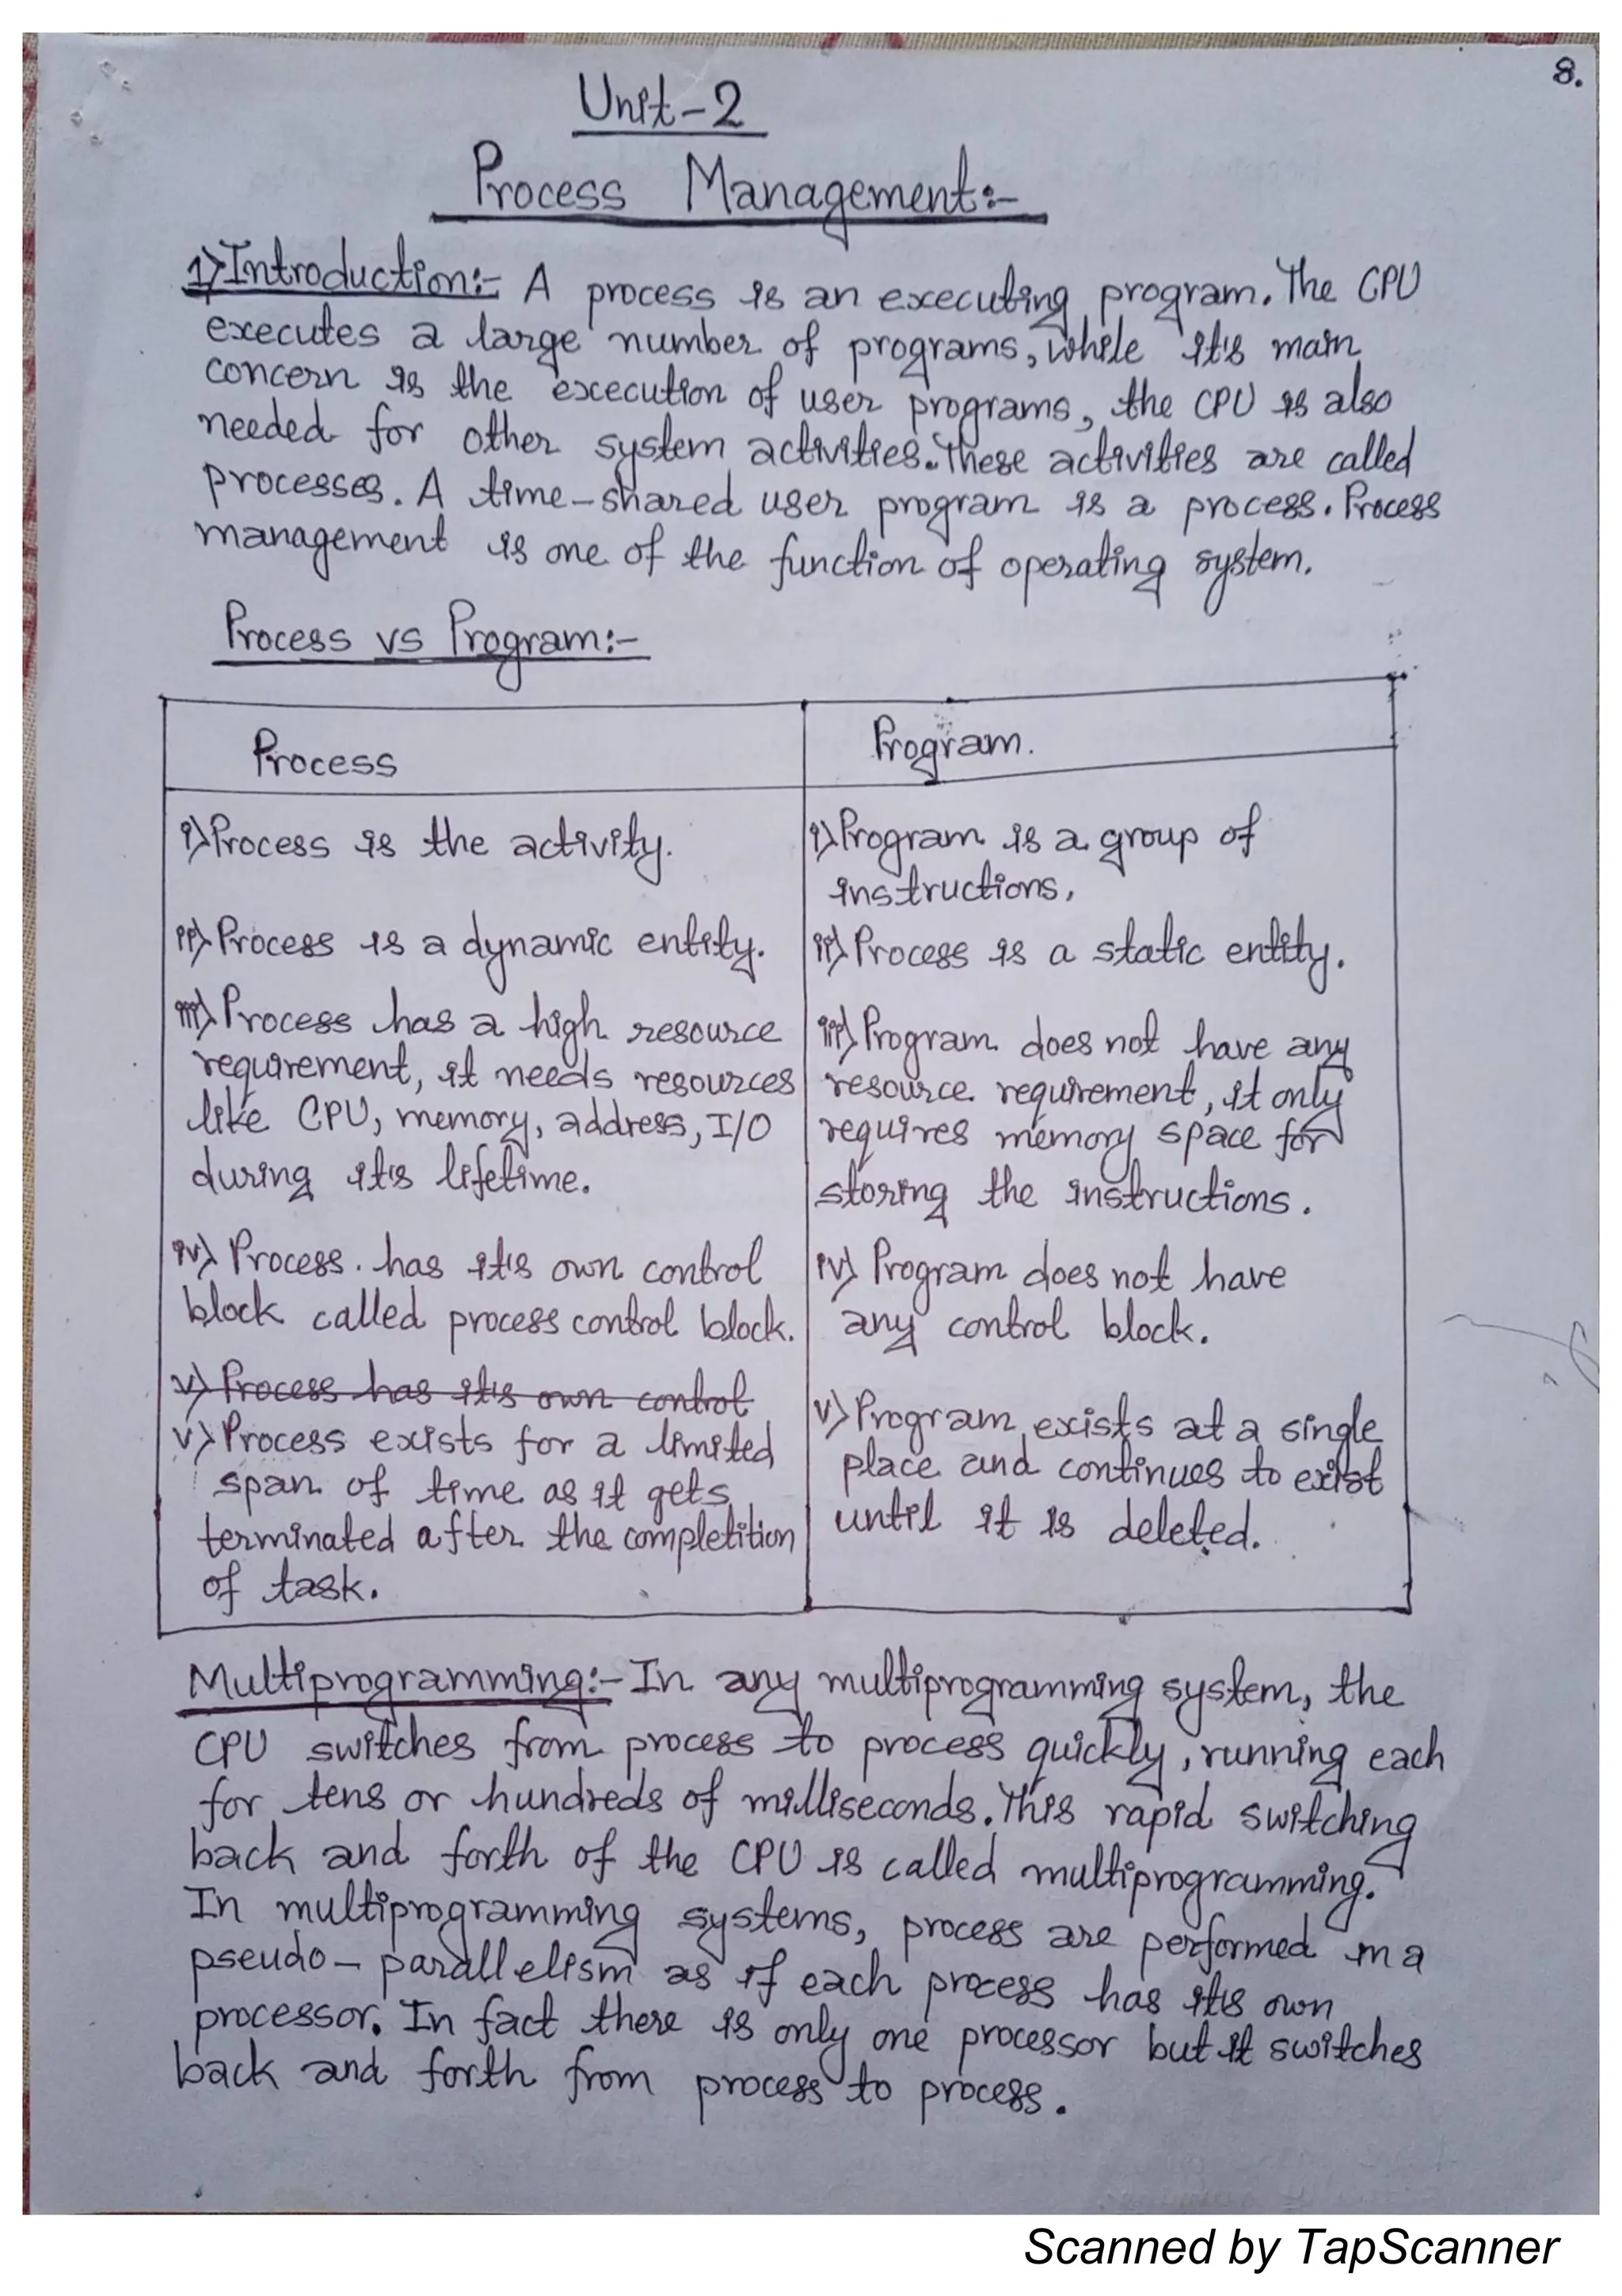 8.
Unit-2
Process Management:-
1) Introduction:- A process is an executing program. The CPU
executes a large number of programs, while it's main
concern is the execution of user programs, the CPU is also
needed for other system activities. These activities are called
processes. A time-shared user program is a process. Process
management is one of the function of operating system.
Process vs Program:-
Process
i) Process is the activity.
ii) Process is a dynamic entity.
iii) Process has a high resource
requirement, it needs resources
like CPU, memory, address, I/O
during it's lifetime.
iv) Process. has it's own control
block called process control block.
v) Process has it's own control
v) Process exists for a limited
span of time as it gets
terminated after the completition
of task.
Program.
i) Program is a group of
instructions.
ii) Process is a static entity.
iii) Program does not have any
resource requirement, it only
requires memory space for
storing the instructions.
iv) Program does not have
any control block.
v) Program exists at a single
place and continues to exist
until it is deleted.
Multiprogramming:- In any multiprogramming system, the
CPU switches from process to process quickly, running each
for tens or hundreds of milliseconds. This rapid switching
back and forth of the CPU is called multiprogramming.
In multiprogramming systems, process are performed in a
pseudo-parallelism as if each process has it's own
processor. In fact there is only one processor but it switches
back and forth from process to process.
Scanned by TapScanner